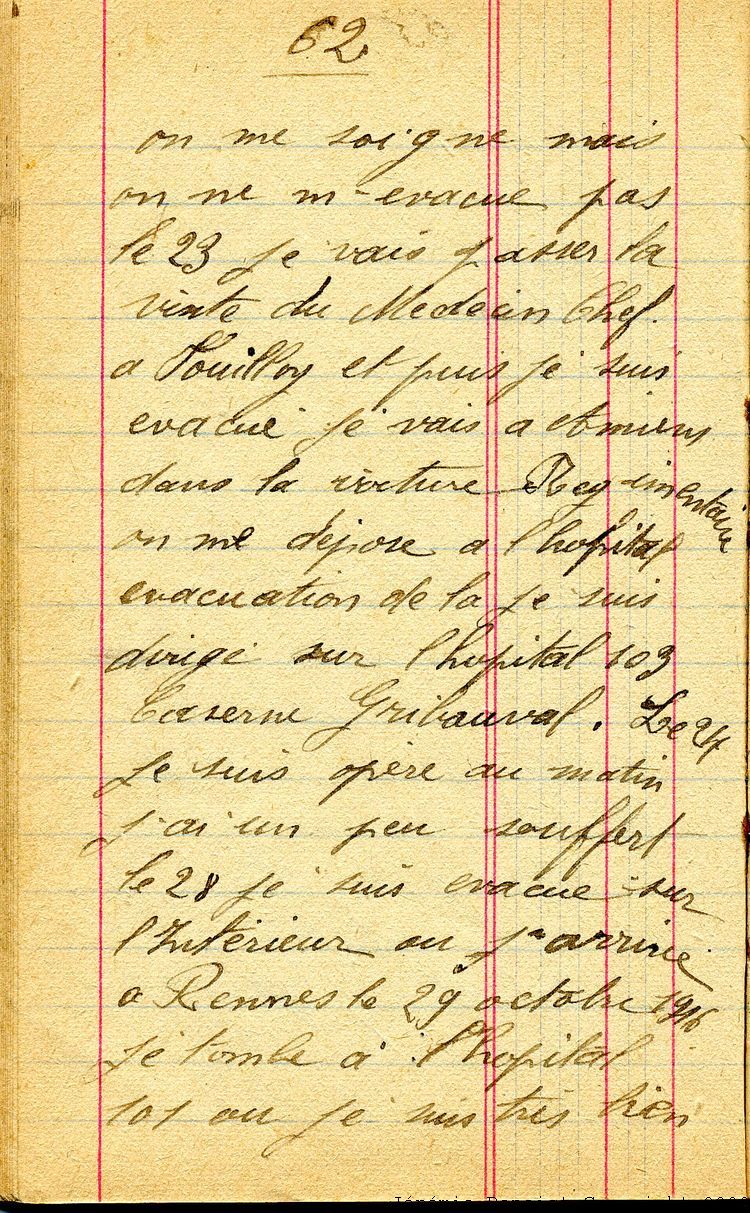 62
on me soigne mais
on ne m-evacue pas
le 23 je vais passer la
visite du Medecin Chef.
a Fouilloy et puis je suis
evacué je vais a Amiens
dans la voiture Regimentaire
on me dépose a l'hopital
evacuation de la je suis
dirigé sur l'hopital 103
Caserne Gribauval. Le 24
je suis opéré au matin
j'ai un peu souffert
le 28 je suis evacue sur
l'Intérieur ou j'arrive
a Rennes le 29 octobre 1916
je tombe à l'hopital
101 ou je suis très bien